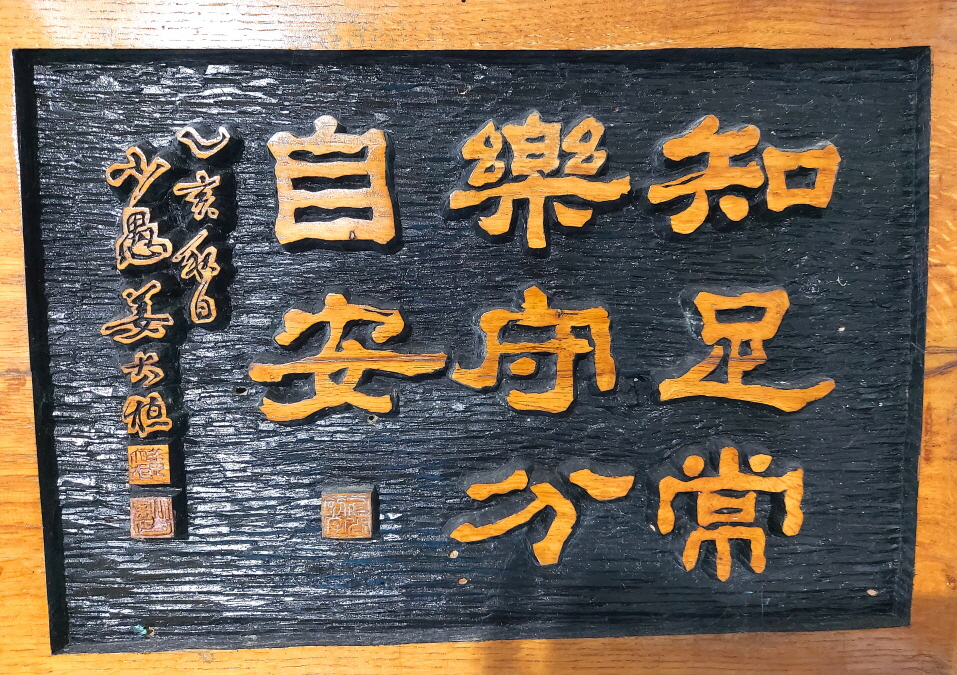 知足常
樂守分
自安
乙亥春日
少愚姜大植